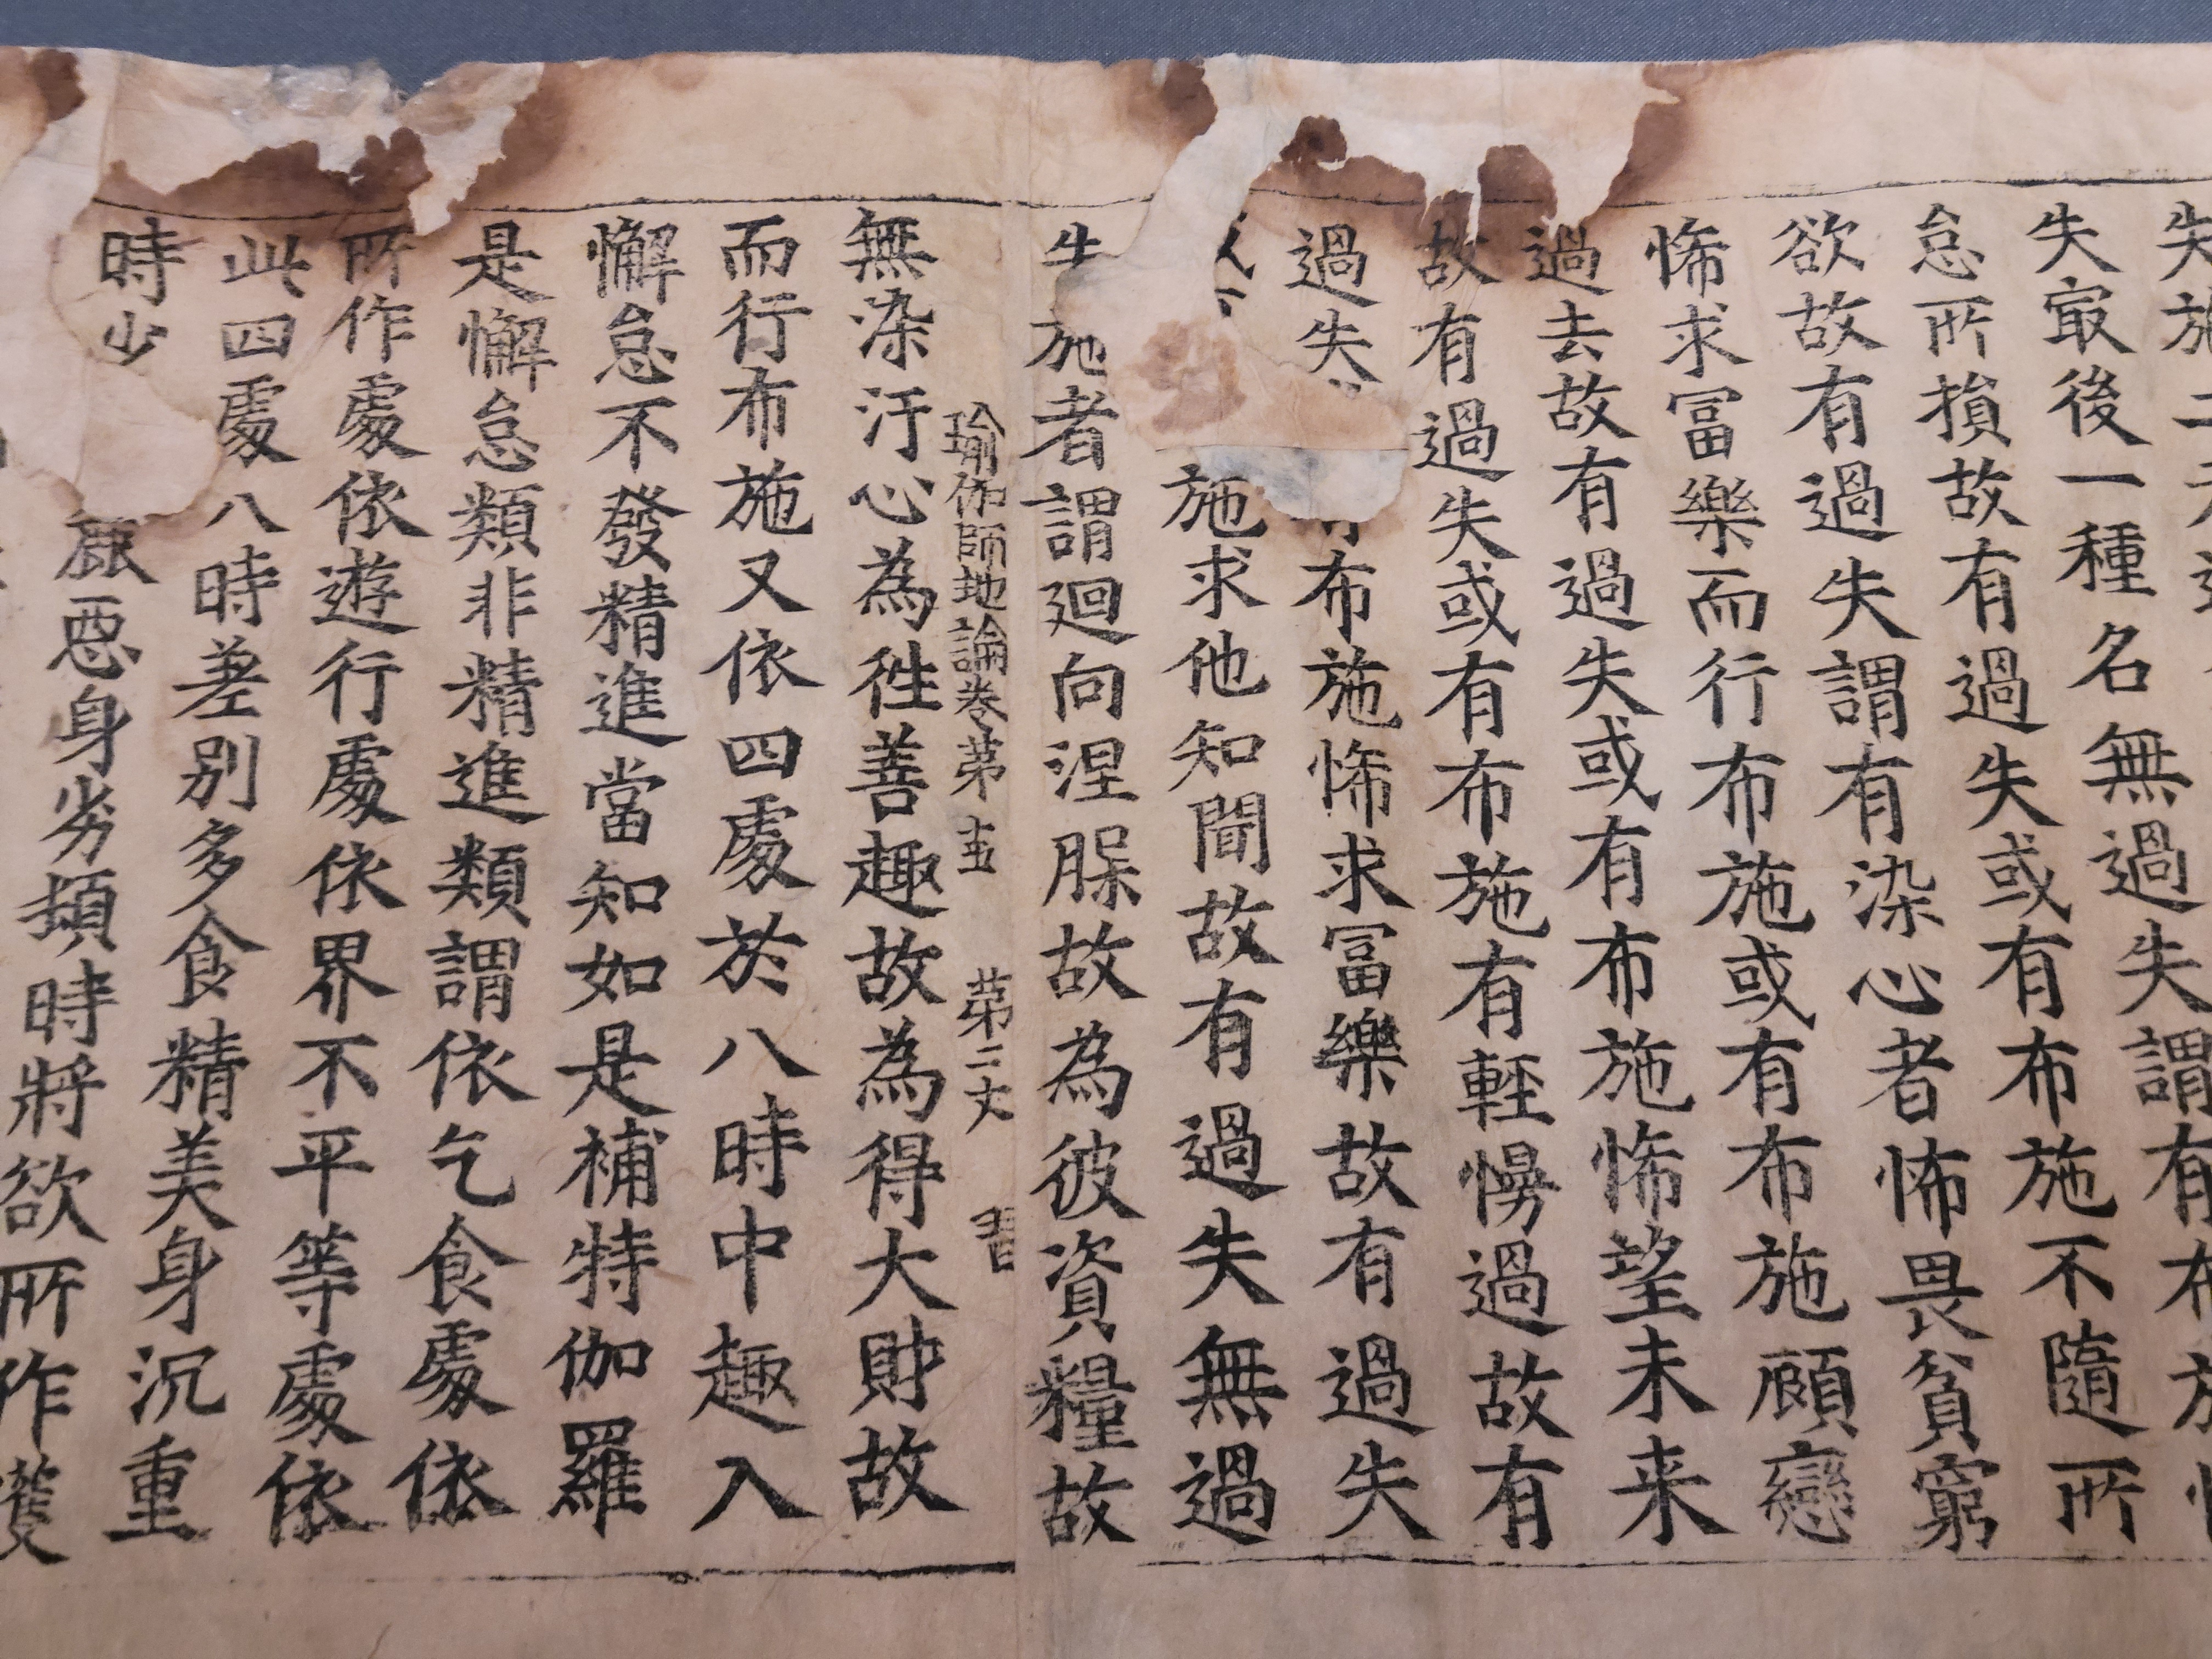 失施
失㝡後一種名無過失謂有布施
怠所損故有過失或有布施不隨所
欲故有過失謂有染心者怖畏貧窮
悕求冨樂而行布施或有布施顧戀
過去故有過失或有布施悕望未来
故有過失或有布施有輕慢過故有
過失布施悕求冨樂故有過失
施求他知聞故有過失無過
施者謂迴向涅槃故為彼資糧故
瑜伽師地論卷苐十五 苐二丈 習
無染汙心為徃善趣故為得大財故
而行布施又依四處於八時中趣入
懈怠不發精進當知如是補特伽羅
是懈怠類非精進類謂依乞食處依
所作處依遊行處依界不平等處依
此四處八時差別多食精美身沉重
時少麁惡身劣頓時將欲所作護